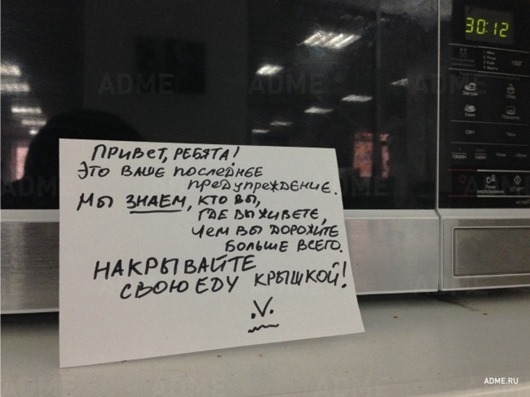 30:12
ПРИВЕТ, РЕБЯТА!
ЭТО ВАШЕ ПОСЛЕДНЕЕ
ПРЕДУПРЕЖДЕНИЕ.
МЫ ЗНАЕМ, КТО ВЫ,
ГДЕ ВЫ ЖИВЕТЕ,
ЧЕМ ВЫ ДОРОЖИТЕ
БОЛЬШЕ ВСЕГО.
НАКРЫВАЙТЕ
СВОЮ ЕДУ КРЫШКОЙ!
.V.
ADME.RU